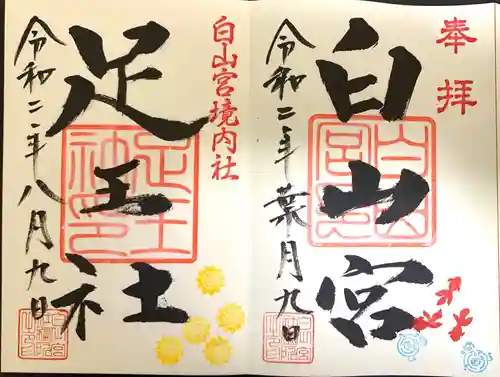 奉拝
白山宮
令和二年葉月九日
白山宮境内社
足王社
令和二年八月九日